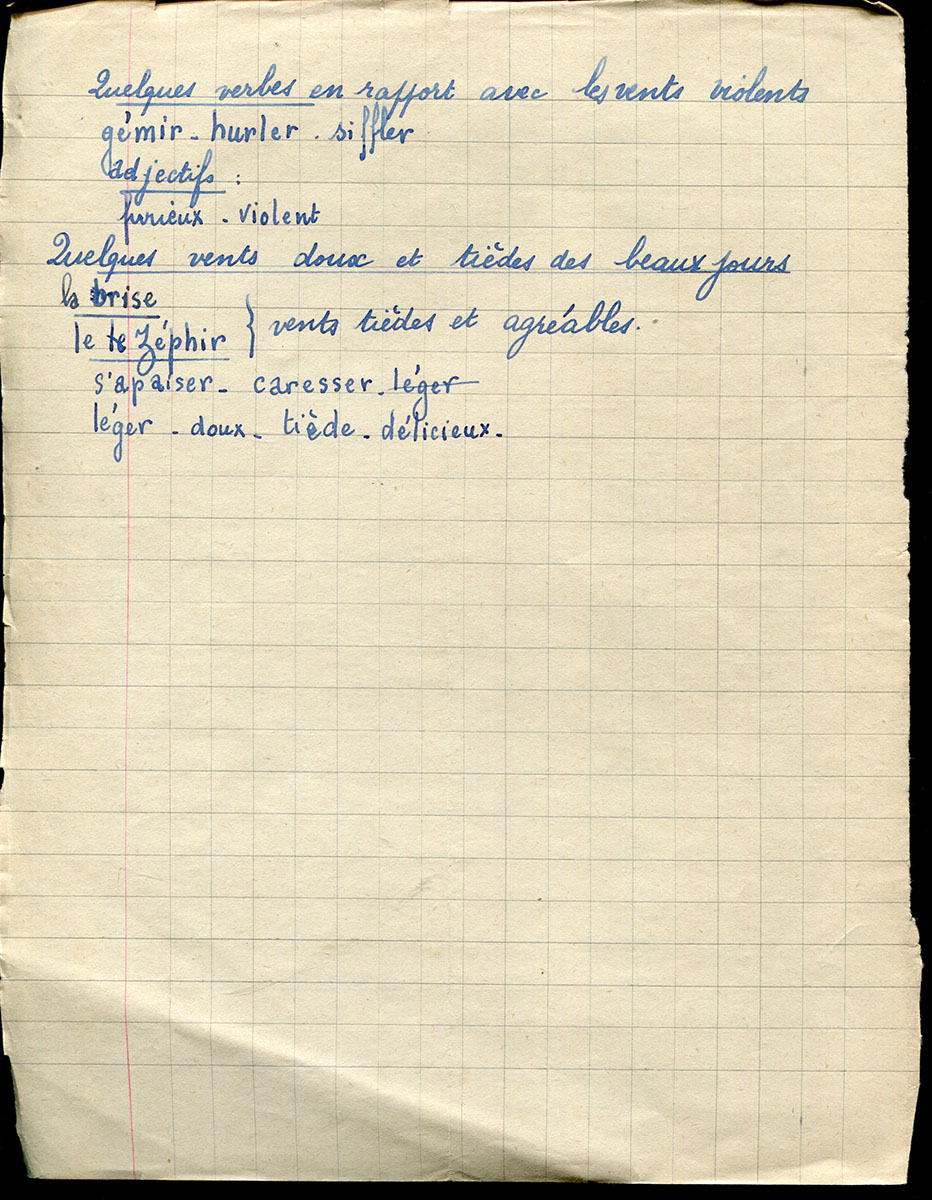 Quelques verbes en rapport avec les vents violents
gémir - hurler - siffler
adjectifs :
furieux - violent
Quelques vents doux et tièdes des beaux jours
la brise
le te Zéphir } vents tièdes et agréables.
s'apaiser - caresser - léger
léger - doux - tiède - délicieux -